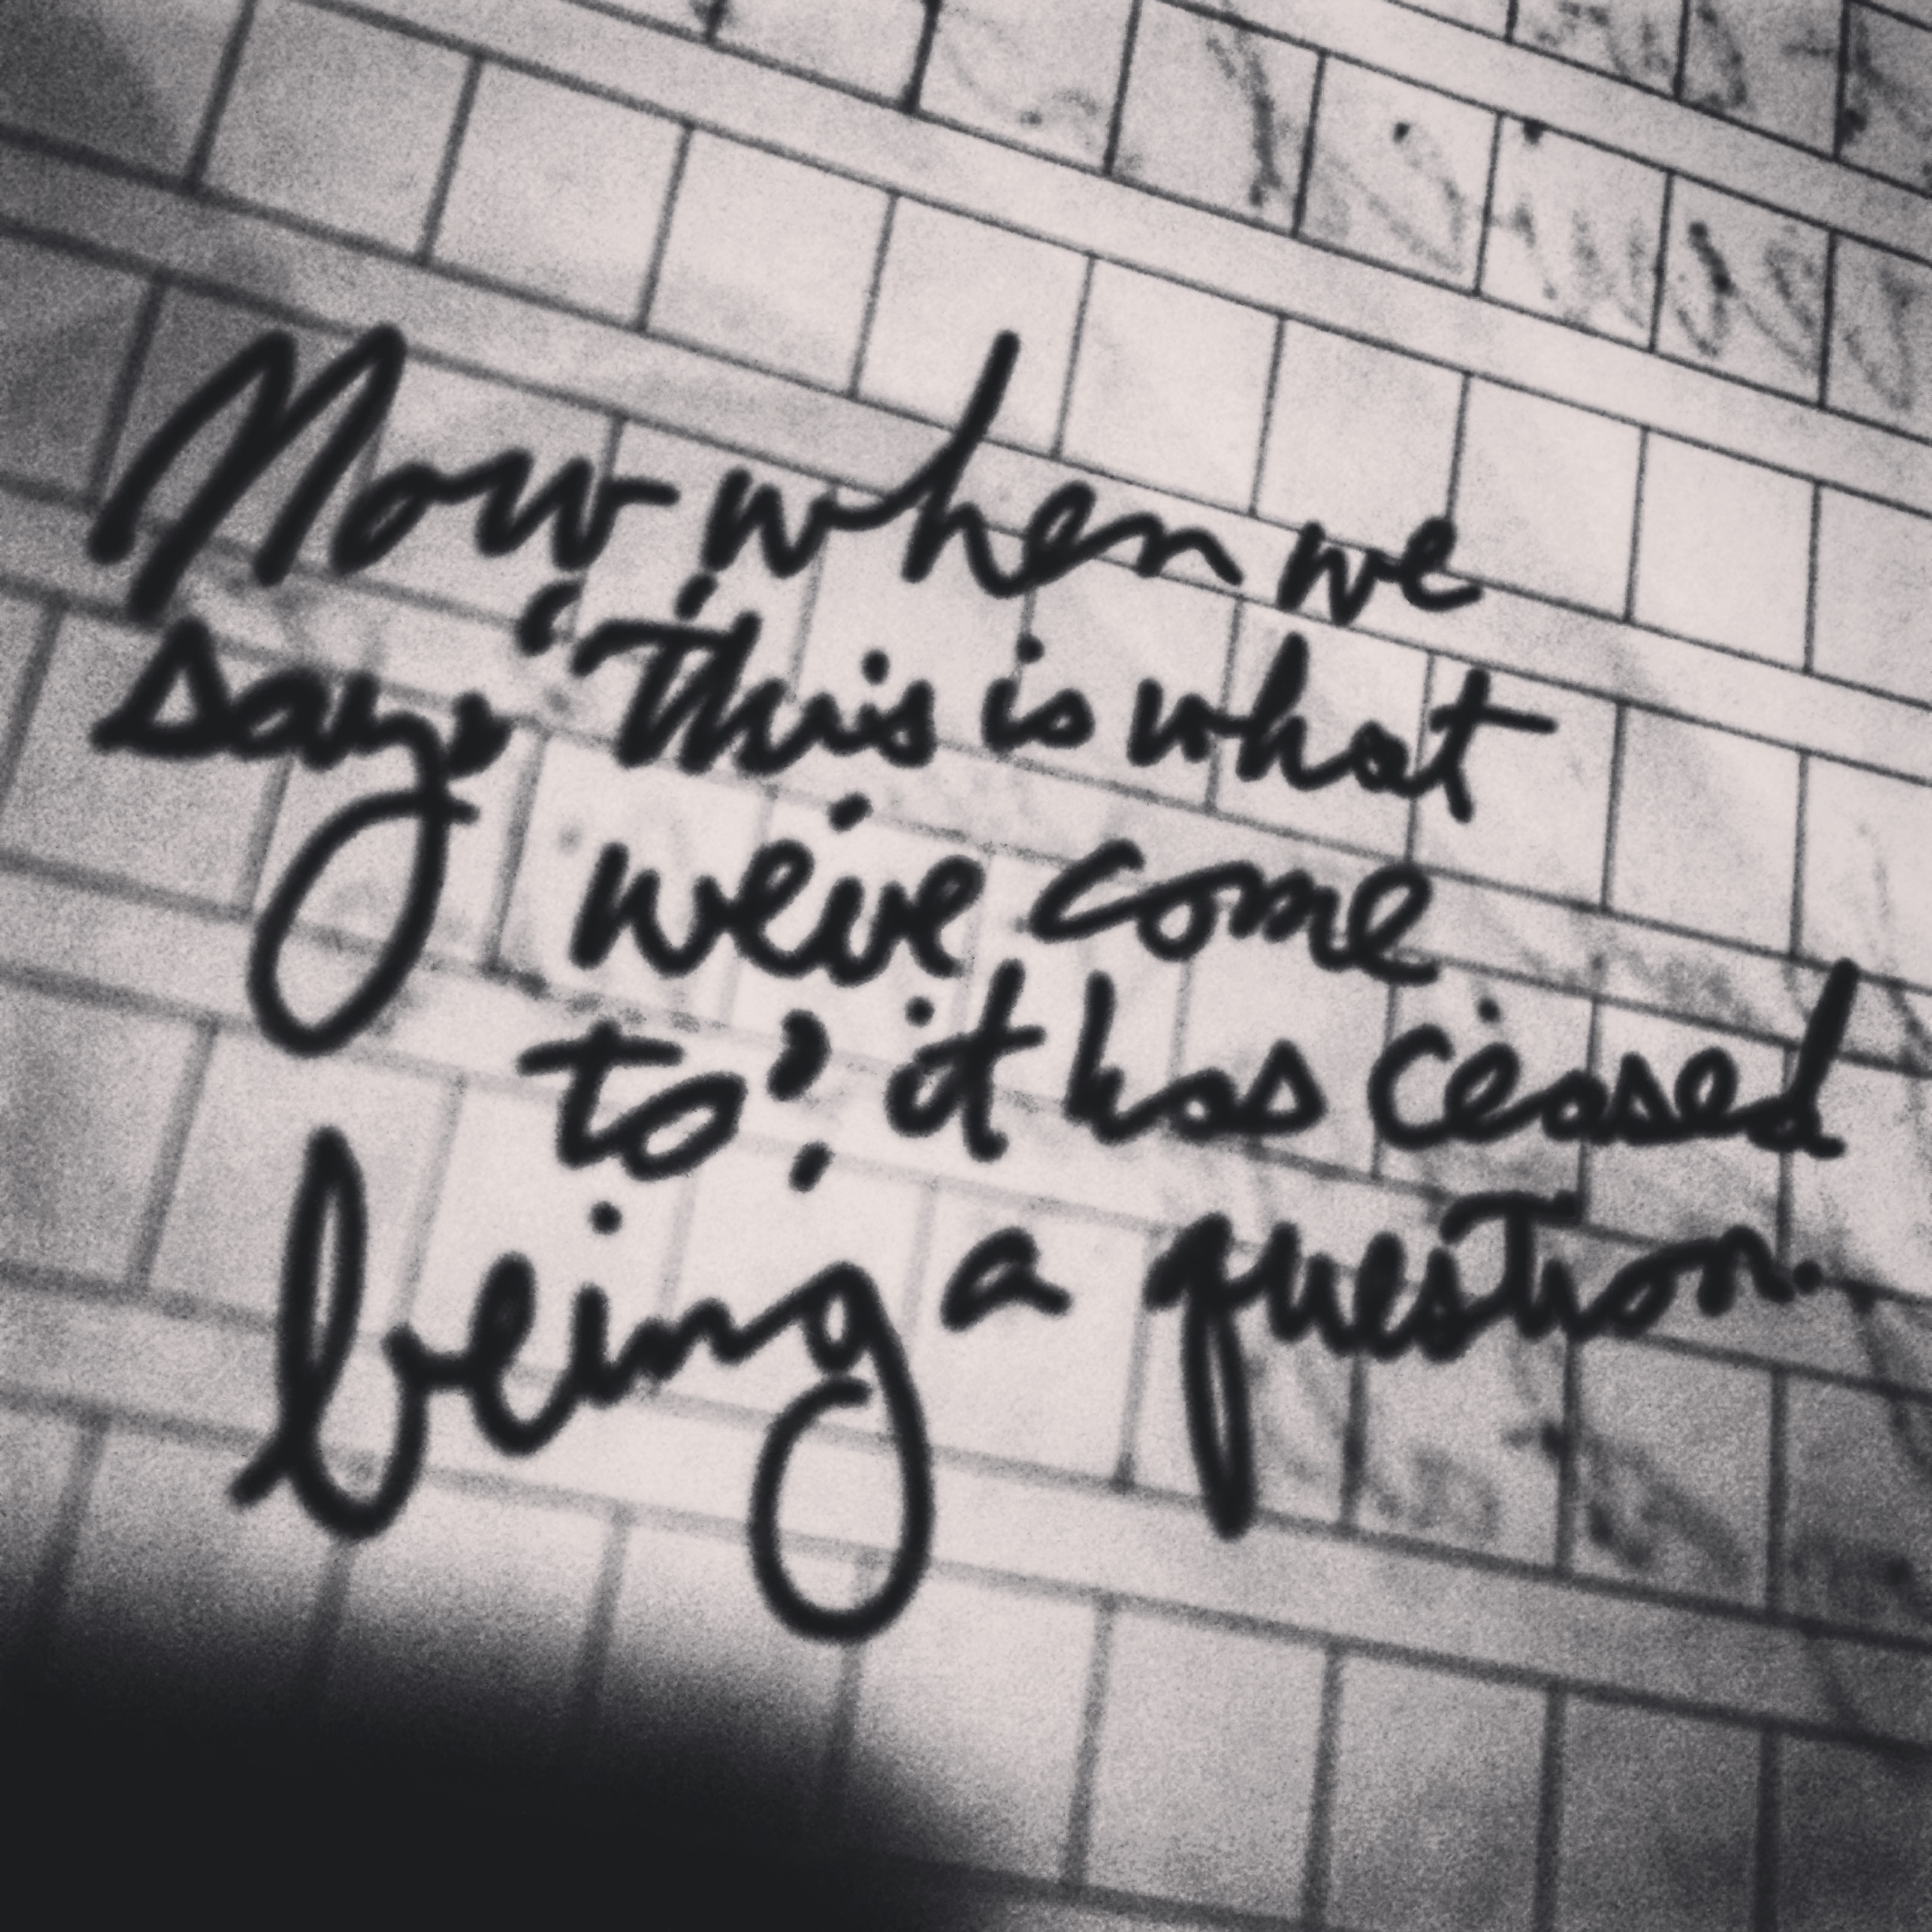 Now when we
say, 'This is what
we've come
to', it has ceased
being a question.